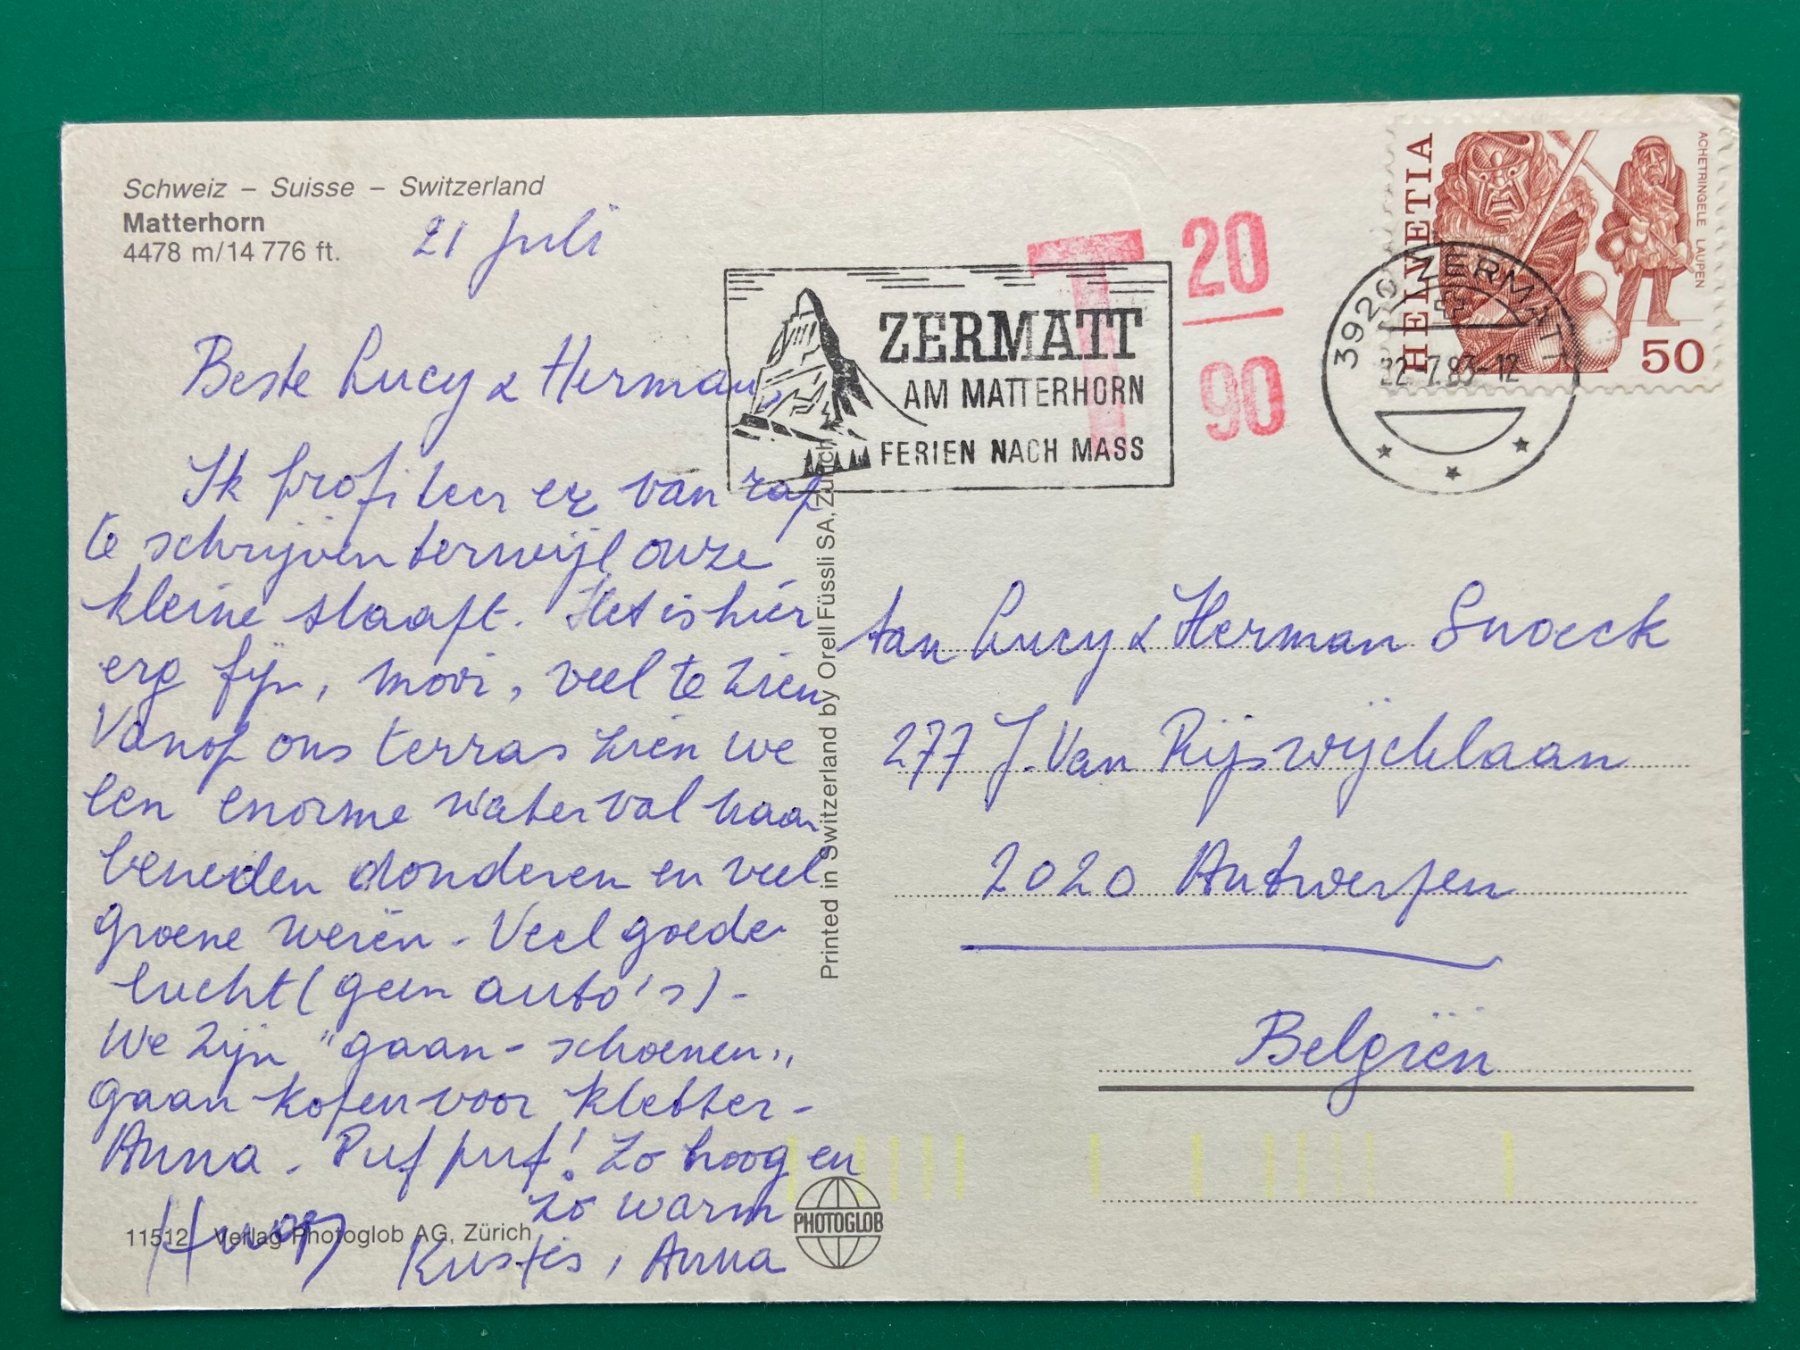 Schweiz – Suisse – Switzerland
Matterhorn
4478 m/14 776 ft.
21 Juli
Beste Lucy & Herman,
Ik profiteer er van rap
te schrijven terwijl onze
kleine slaapt. Het is hier
erg fijn, mooi, veel te zien
Vanop ons terras zien we
een enorme waterval naar
beneden donderen en veel
groene weien - Veel goede
lucht (geen auto's) -
We zijn "gaan-schoenen„
gaan kopen voor kletter-
Anna. Puf puf! Zo hoog en
zo warm
Kusjes, Anna
11512 Verlag Photoglob AG, Zürich
PHOTOGLOB
Printed in Switzerland by Orell Füssli SA, Zürich
ZERMATT
AM MATTERHORN
FERIEN NACH MASS
T 20
90
3920 ZERMATT
22.7.83-12
HELVETIA
ACHETRINGELE LAUPEN
50
Aan Lucy & Herman Snoeck
277 J. Van Rijswijcklaan
2020 Antwerpen
Belgiën